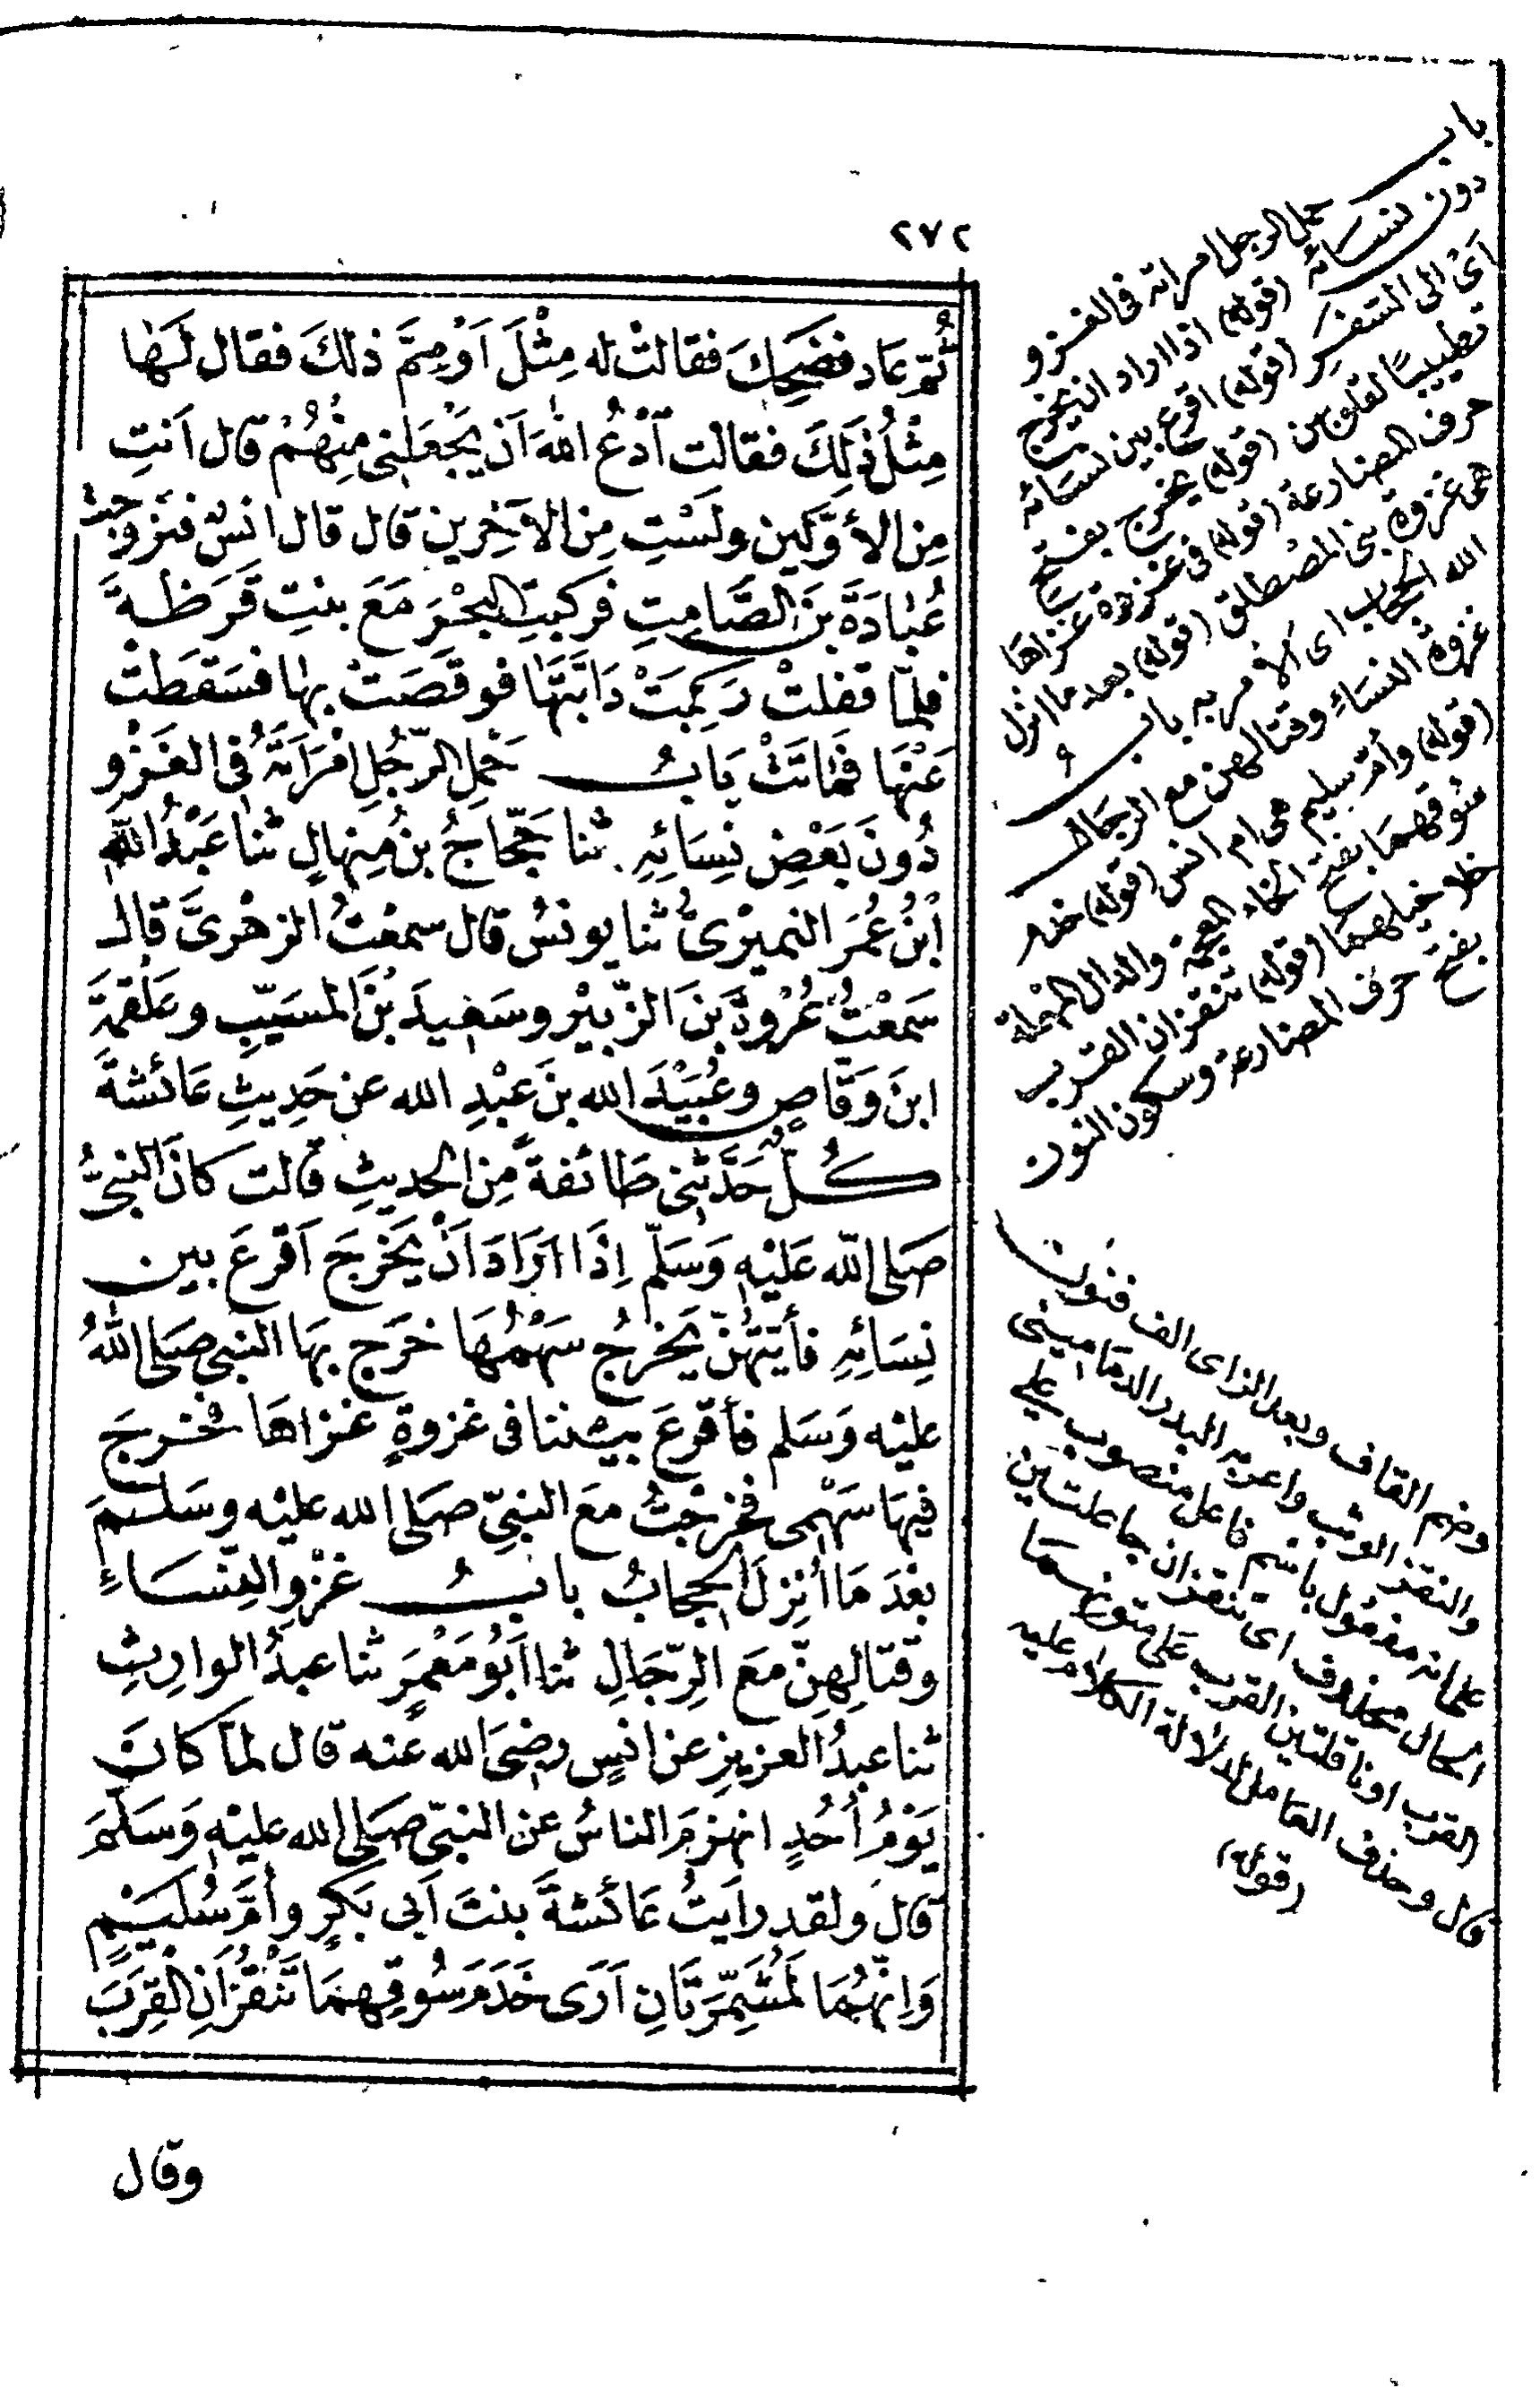 ٢٧٢
ثُمّ عَاد فضَحِكَ فقالتْ له مِثْلَ اَوْ مِمَّ ذلكَ فقال لَهَا
مِثْلُ ذٰلِكَ فقالت اَدْعُ اللهَ اَنْ يَجْعَلَنِى مِنْهُمْ قال اَنتِ
مِن الأوَّلِين ولَسْتِ مِن الآخِرِين قال قال انسٌ فتزوجت
عُبَادَةَ بنَ الصَّامِتِ فركبتِ البَحْرَ مَعَ بنتِ قَرَظَةَ
فلمّا قفلتْ رَكِبَتْ دَابَّتَهَا فوقَصَتْ بها فسَقَطَتْ
عَنْهَا فمَاتَتْ بَابُ حَمْلِ الرّجُلِ امْرَأتَهُ فى الغَزْوِ
دُونَ بَعْضِ نِسَائِهِ ثنا حَجَّاجُ بنُ مِنهالٍ ثنا عَبْدُ اللهِ
ابْنُ عُمَرَ النميْرىُّ ثنا يونسُ قال سمعْتُ الزهْرىَّ قال
سَمعْتُ عُرْوَةَ بنَ الزّبيْر وسَعيدَ بْنَ المسَيّبِ وعَلقمَةَ
ابنَ وَقّاصٍ وعُبَيْدَ الله بنَ عَبْدِ الله عن حَدِيثِ عَائشةَ
كُلٌّ حَدَّثنى طَائفةً مِن الحديثِ قالت كانَ النبىُّ
صَلى اللّه عَليْهِ وَسَلّم اِذَا اَرَادَ اَنْ يَخرجَ اَقرعَ بين
نِسَائِهِ فأيّتهُنّ يَخرجُ سَهْمُهَا خَرَج بهَا النبى صَلى اللهُ
عليْه وَسَلم فأقرعَ بيْننا فى غزوةٍ غزاهَا فخرجَ
فيهَا سَهْمى فخرجْتُ معَ النبىّ صَلى الله عليْه وسَلم
بعْدَ مَا اُنزِلَ الحجابُ بابُ غَزْوِ النِّسَاءِ
وقتالِهِنّ معَ الرّجَالِ ثنا اَبُو مَعْمَرٍ ثنا عبدُ الوارِثِ
ثنا عبدُ العزيزِ عن انسٍ رضىَ الله عنه قال لمّا كانَ
يَوْمُ اُحُدٍ انهزمَ الناسُ عن النبىّ صَلى الله عليْه وَسَلّمَ
قال ولقد رأيتُ عَائشةَ بنتَ اَبى بَكرٍ واُمَّ سُليْمٍ
وَاِنّهُمَا لَمُشَمِّرَتَانِ اَرَى خَدَمَ سُوقِهِمَا تَنْقُزَانِ القِرَبَ
وقال
باب
حمل الرجل امراته فى الغزو
دون نسائه (قوله) اذا اراد ان يخرج
اَىْ الى السّفر (قوله) اقرع بين نسائه
تطييبًا لقلوبهن (قوله) يخرج بفتح
حرف المضارعة (قوله) فى غزوة غزاها
هى غزوة بنى المصْطلق (قوله) بعد ما انزل
الله الحجاب اى الامر به باب
غزوة النسَاءِ وقتالهن مع الرجال
(قوله) وأمّ سليم هى ام انس (قوله) خدم
سوقهمَا بفتح الخاء المعجمة والدال المهملة
خلاخيلهما (قوله) تنقزان القرب
بفتح حرف المضارعة وسكون النون
وضم القاف وبعد الزاى الف فنون
والنقز الوثب واعربه البدر الدمامينى
على انه مفعُول باسم فاعل منصوب على
الحال محذوف اى تنقزان جاعلتين
القرب اوناقلتين القرب على متونهما
قال وحذف العَامل لدلالة الكلام عليه
(قوله)